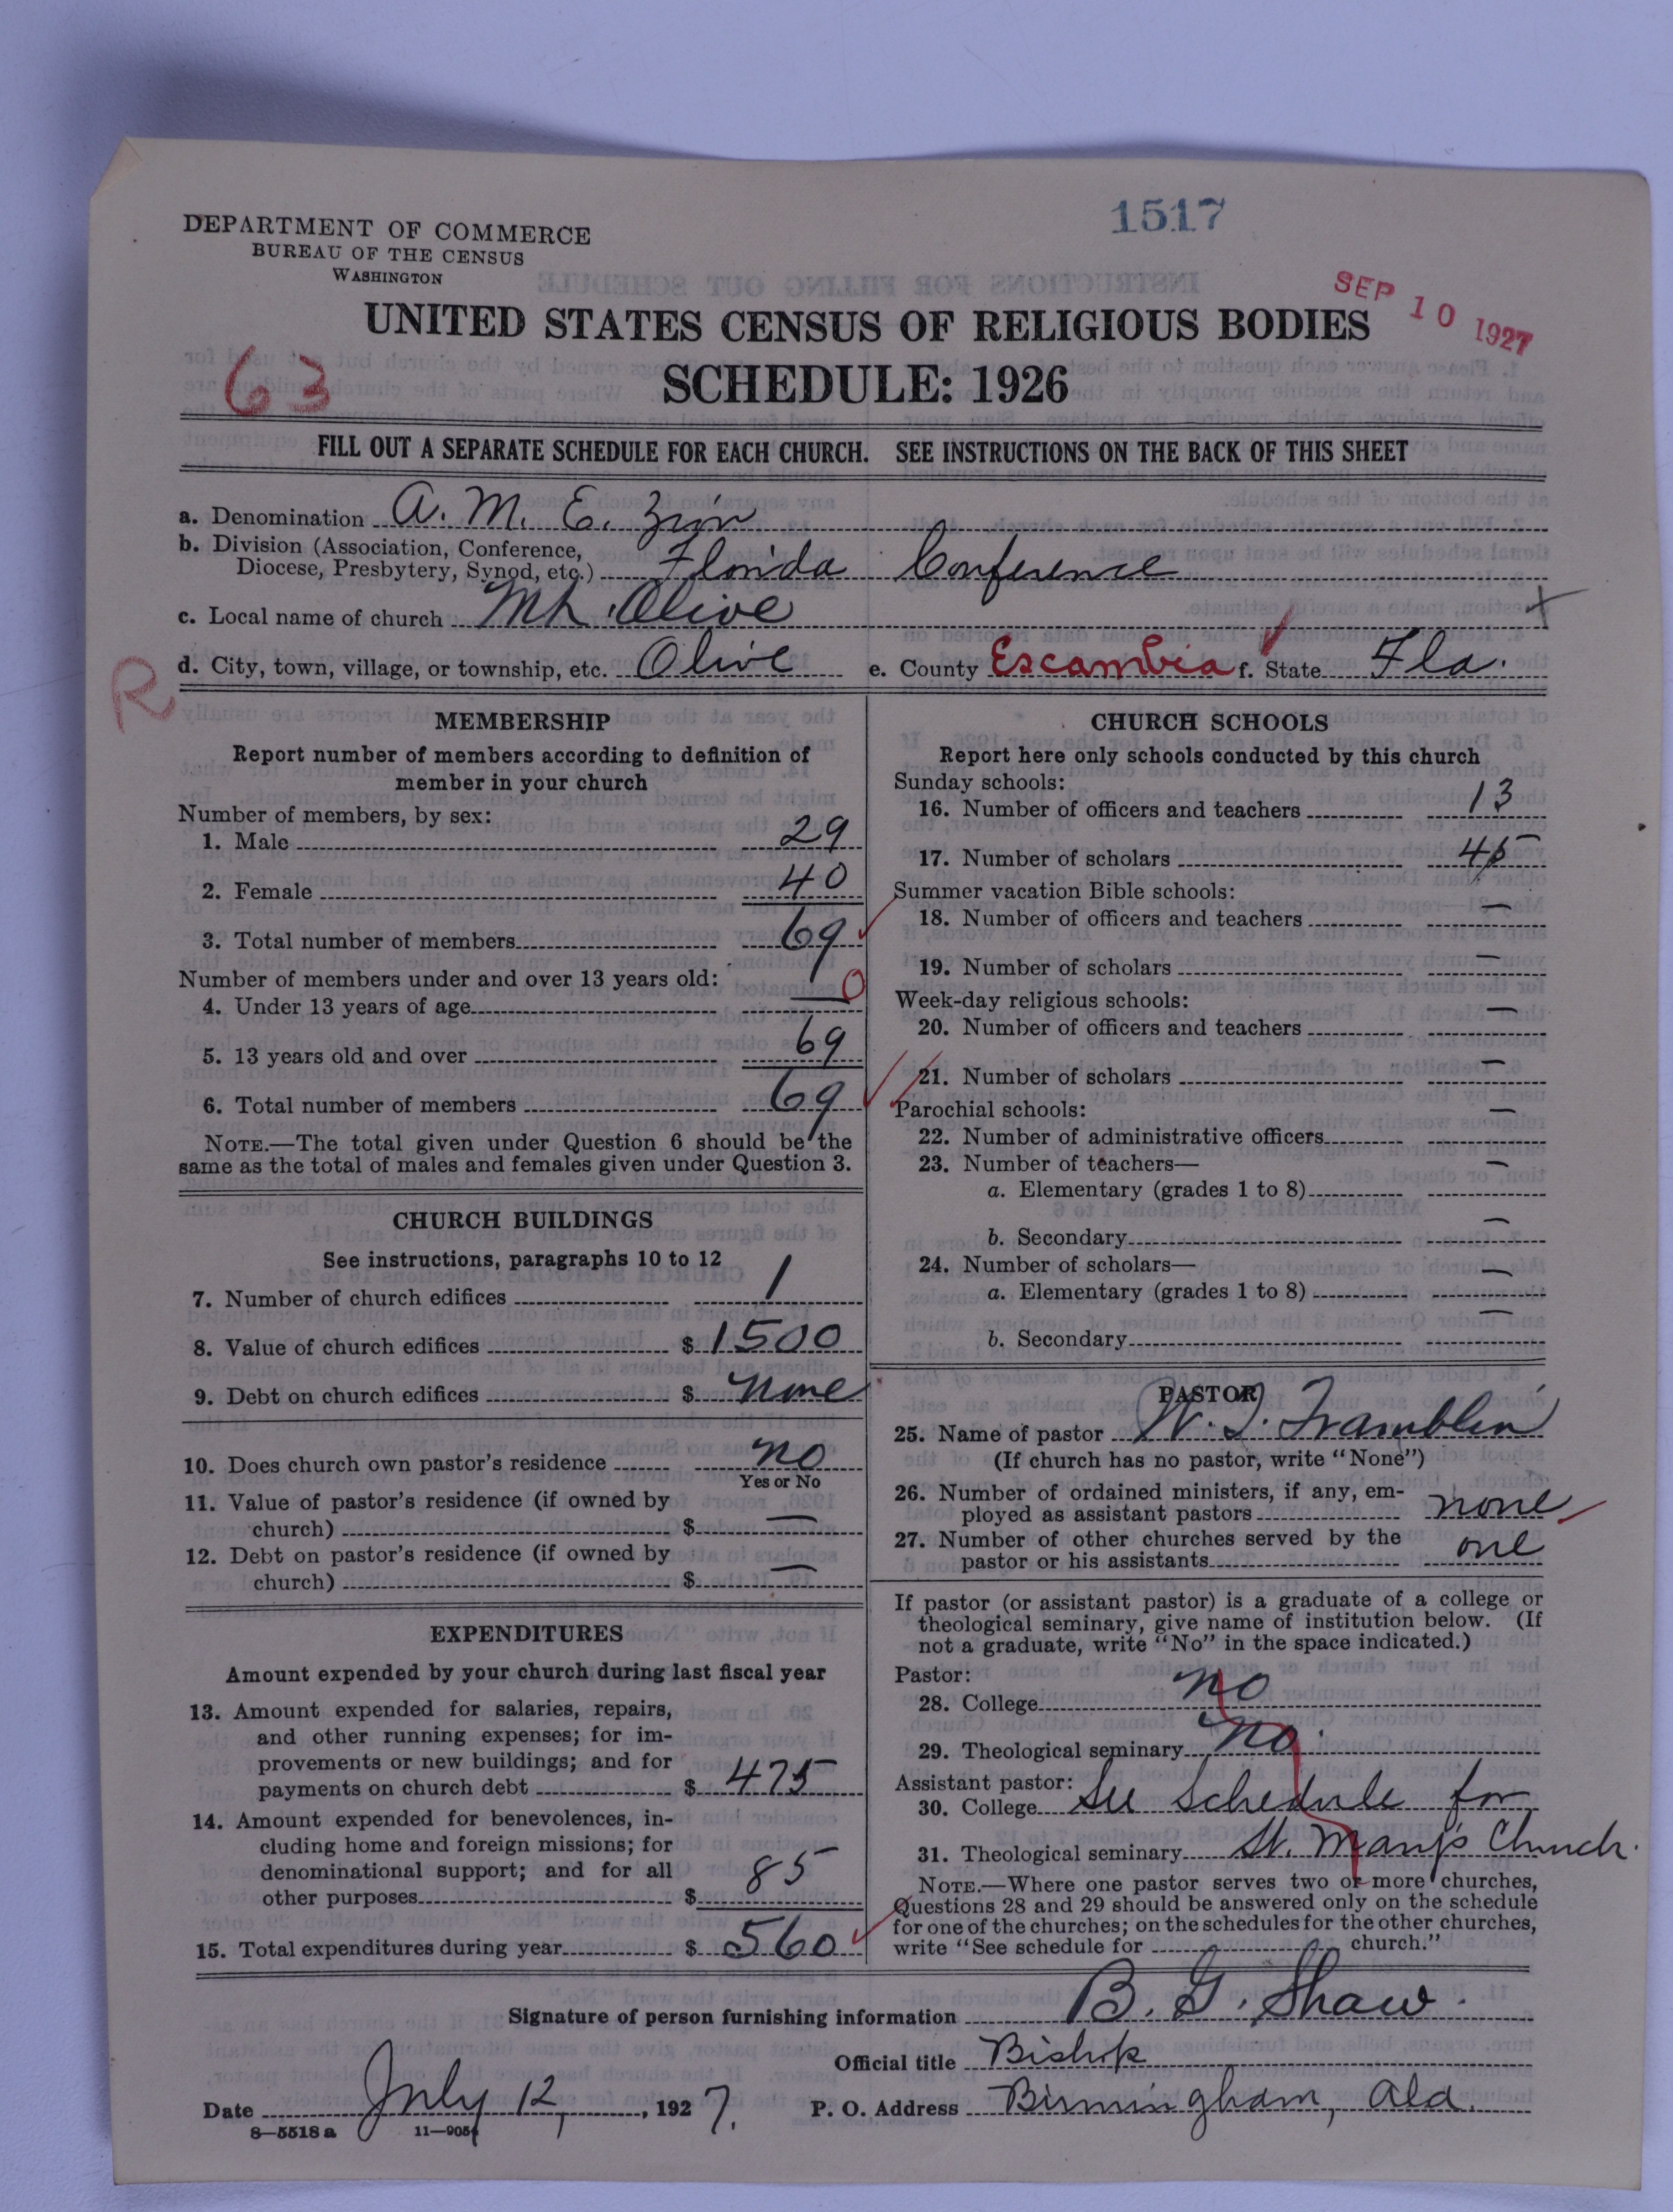 1517
DEPARTMENT OF COMMERCE
BUREAU OF THE CENSUS
WASHINGTON
SEP 10 1927
UNITED STATES CENSUS OF RELIGIOUS BODIES
63
SCHEDULE: 1926
FILL OUT A SEPARATE SCHEDULE FOR EACH CHURCH. SEE INSTRUCTIONS ON THE BACK OF THIS SHEET
a. Denomination A. M. E. Zion
b. Division (Association, Conference,
Diocese, Presbytery, Synod, etc.) Florida Conference
c. Local name of church Mt. Olive
R
d. City, town, village, or township, etc. Olive e. County Escambia f. State Fla.
MEMBERSHIP
Report number of members according to definition of
member in your church
Number of members, by sex:
1. Male 29
2. Female 40
3. Total number of members 69
Number of members under and over 13 years old:
4. Under 13 years of age — 0
5. 13 years old and over 69
6. Total number of members 69
NOTE.—The total given under Question 6 should be the
same as the total of males and females given under Question 3.
CHURCH BUILDINGS
See instructions, paragraphs 10 to 12
7. Number of church edifices 1
8. Value of church edifices $ 1500
9. Debt on church edifices $ none
10. Does church own pastor's residence no
Yes or No
11. Value of pastor's residence (if owned by
church) $ —
12. Debt on pastor's residence (if owned by
church) $ —
EXPENDITURES
Amount expended by your church during last fiscal year
13. Amount expended for salaries, repairs,
and other running expenses; for im-
provements or new buildings; and for
payments on church debt $ 475
14. Amount expended for benevolences, in-
cluding home and foreign missions; for
denominational support; and for all
other purposes $ 85
15. Total expenditures during year $ 560
CHURCH SCHOOLS
Report here only schools conducted by this church
Sunday schools:
16. Number of officers and teachers 13
17. Number of scholars 45
Summer vacation Bible schools:
18. Number of officers and teachers —
19. Number of scholars —
Week-day religious schools:
20. Number of officers and teachers —
21. Number of scholars —
Parochial schools:
22. Number of administrative officers —
23. Number of teachers—
a. Elementary (grades 1 to 8) —
b. Secondary —
24. Number of scholars—
a. Elementary (grades 1 to 8) —
b. Secondary —
PASTOR
25. Name of pastor W. I. Tramblin
(If church has no pastor, write "None")
26. Number of ordained ministers, if any, em-
ployed as assistant pastors none
27. Number of other churches served by the
pastor or his assistants one
If pastor (or assistant pastor) is a graduate of a college or
theological seminary, give name of institution below. (If
not a graduate, write "No" in the space indicated.)
Pastor:
28. College no
29. Theological seminary no
Assistant pastor:
30. College See Schedule for
31. Theological seminary St. Mary's Church.
NOTE.—Where one pastor serves two or more churches,
Questions 28 and 29 should be answered only on the schedule
for one of the churches; on the schedules for the other churches,
write "See schedule for church."
Signature of person furnishing information B. G. Shaw.
Official title Bishop
Date July 12, 1927. P. O. Address Birmingham, Ala.
8—5518 a 11—9054